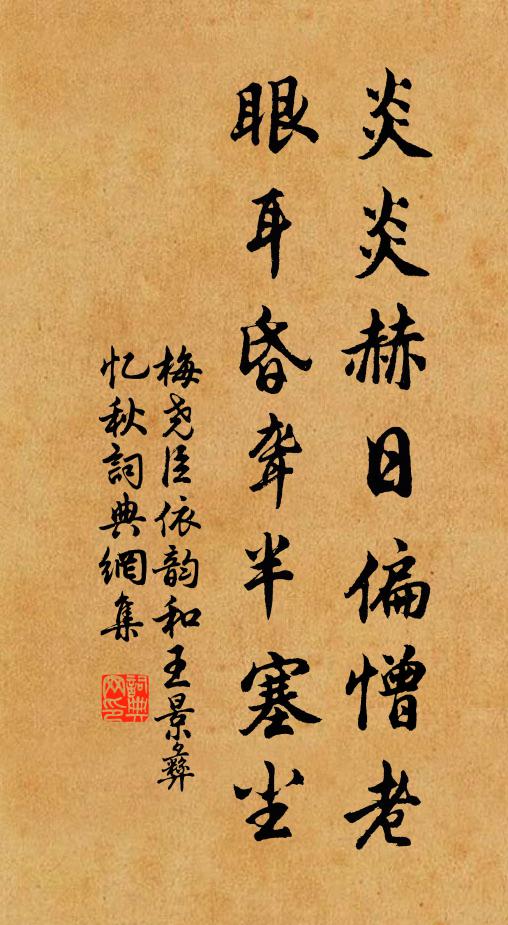 炎炎赫日偏憎老
眼耳昏聋半塞尘
梅尧臣依韵和王景彝
忆秋詞典網集
詞典網印